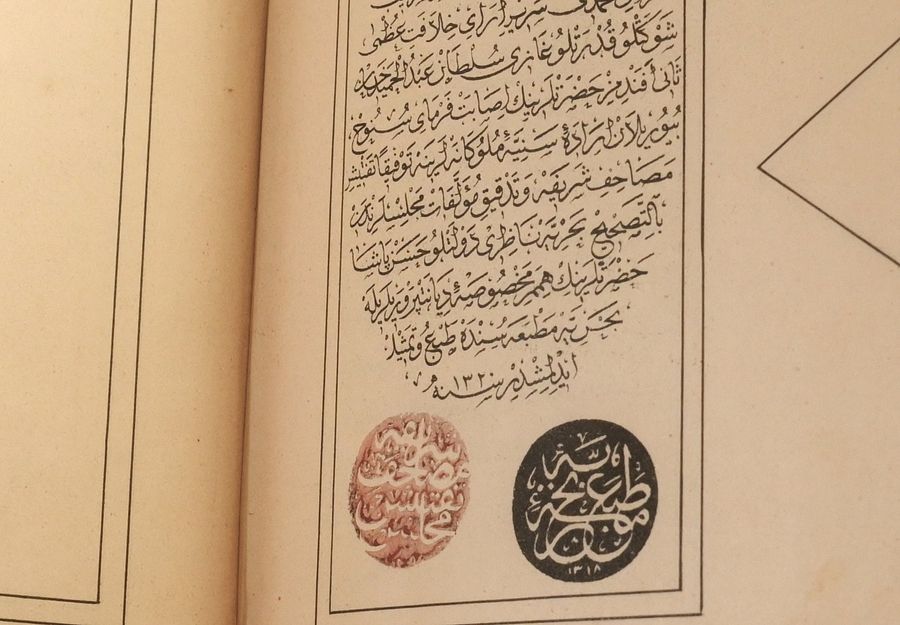 سرير اراى خلافت عظمى
شوكتلو قدرتلو غازى سلطان عبد الحميد خان
ثانى افندمز حضرتلرينك اصابت فرماى سنوح
بيوريلان اراده سنيۀ ملوكانه لرينه توفيقا تفتيش
مصاحف شريفه وتدقيق مؤلفات مجلسلرندن
بالتصحيح بحريه ناظرى دولتلو حسن پاشا
حضرتلرينك همم مخصوصۀ ديانتپروريلريله
بحريه مطبعه سنده طبع وتمثيل
ايدلمشدر سنه ١٣٢٠
مجلس تفتيش مصاحف شريفه
١٣١٨